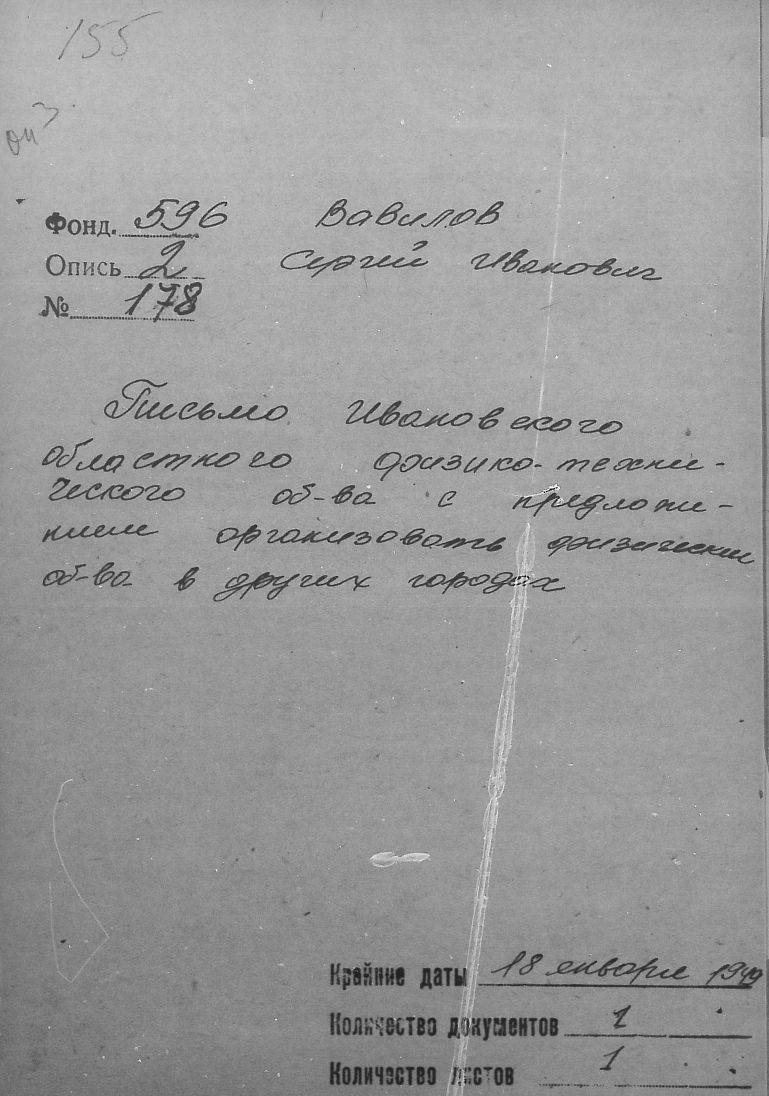 155
Фонд. 596 Вавилов
Опись 2 Сергей Иванович
№ 178
Письмо Ивановского
областного физико-техни-
ческого об-ва с предложе-
нием организовать физические
об-ва в других городах
Крайние даты 18 января 1949
Количество документов 1
Количество листов 1